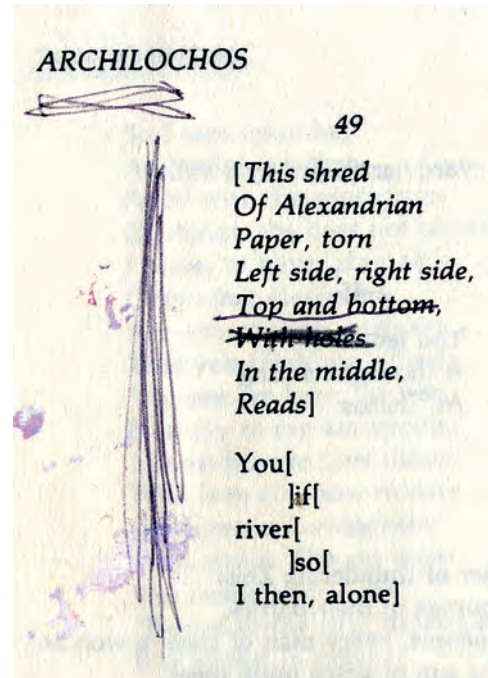 ARCHILOCHOS
49
[This shred
Of Alexandrian
Paper, torn
Left side, right side,
Top and bottom,
With holes
In the middle,
Reads]
You[
]if[
river[
]so[
I then, alone]